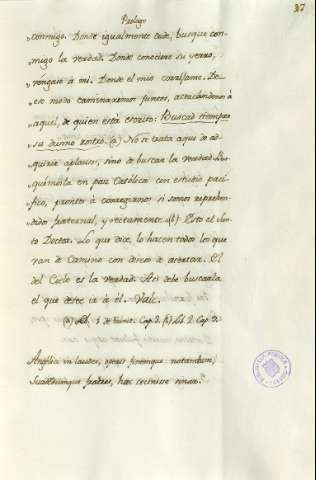 Prologo
37
"conmigo. Donde igualmente dude, busque con-
"migo la verdad. Donde conociere su yerro,
"vengase à mi. Donde el mio corrijame. De
"ese modo caminaremos juntos, acercandonos à
"aquel, de quien está escrito: Buscad siempre
"su divino rostro. (a) No se trata aqui de ad-
quirir aplausos, sino de buscar la verdad. Bus-
quémosla en paz Catolica con estudio paci-
fico, prontos à corregirnos si somos reprehen-
didos fraternal, y rectamente. (b) Esto el San-
to Doctor. Lo que dice, lo hacen todos los que
van de Camino con deseo de acertar. El
del Cielo es la verdad. Asi debe buscarla
el que desee ir à él. Vale.
(a) Lib. 1 de Trinit. Cap. 3. (b) Lib. 2. Cap. 9.
in laudes,
fratres, hac